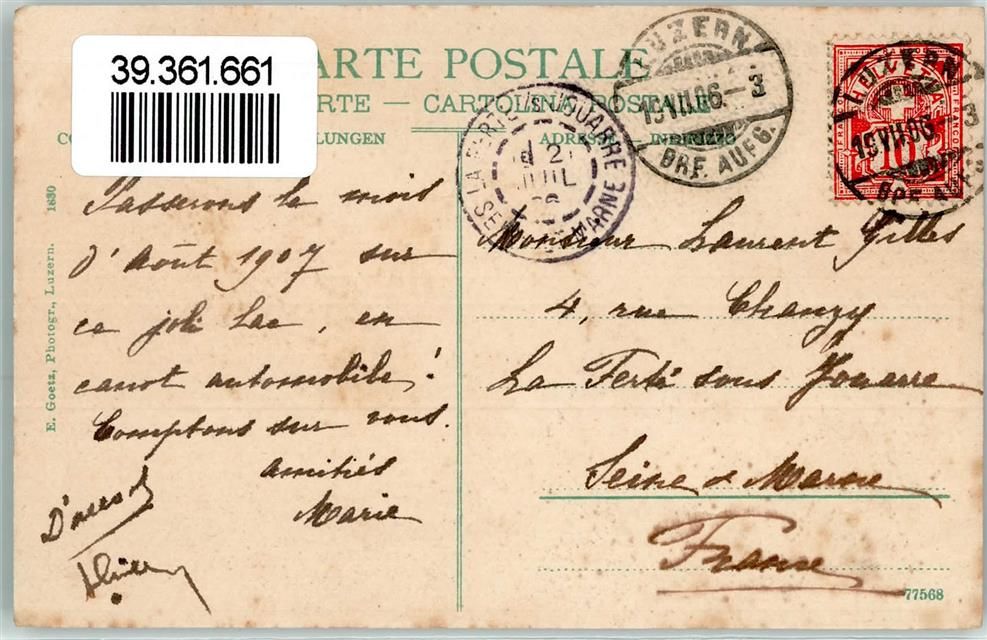 39.361.661
ARTE POSTALE
RTE — CARTOLINA POSTALE
CO LUNGEN ADRESSE - INDIRIZZO
LUZERN
19.VII.06.-3
BRF. AUFG.
LUZERN
19.VII.06.-3
BRF. AUFG.
FRANCO
10
LA FERTÉ-S-JOUARRE
21
JUIL
06
SEINE MARNE
Passerons le mois
d'Août 1907 sur
ce joli Lac, en
canot automobile!
Comptons sur vous.
amitiés
Marie
D'accord
Monsieur Laurent Gilles
4, rue Chanzy
La Ferté sous Jouarre
Seine & Marne
France
E. Goetz, Photogr., Luzern. 1830
77568